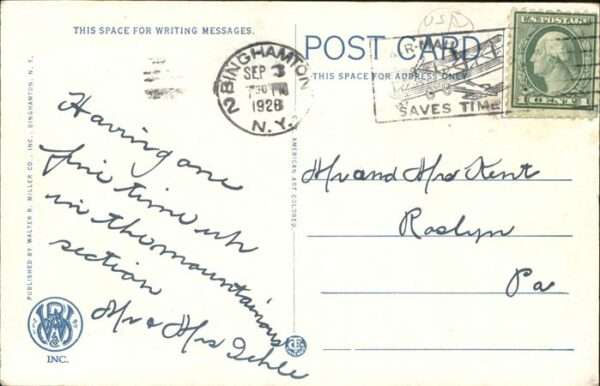 THIS SPACE FOR WRITING MESSAGES.
POST CARD
THIS SPACE FOR ADDRESS ONLY.
BINGHAMTON
SEP 3
1928
N.Y.
2
U.S.A.
AIR MAIL
SAVES TIME
U.S. POSTAGE
1 CENT 1
Having one
fine time up
in the mountainous
section
Mr & Mrs
Mr and Mrs Kent
Roslyn
Pa
PUBLISHED BY WALTER R. MILLER CO., INC., BINGHAMTON, N. Y.
AMERICAN ART COLORED
INC.